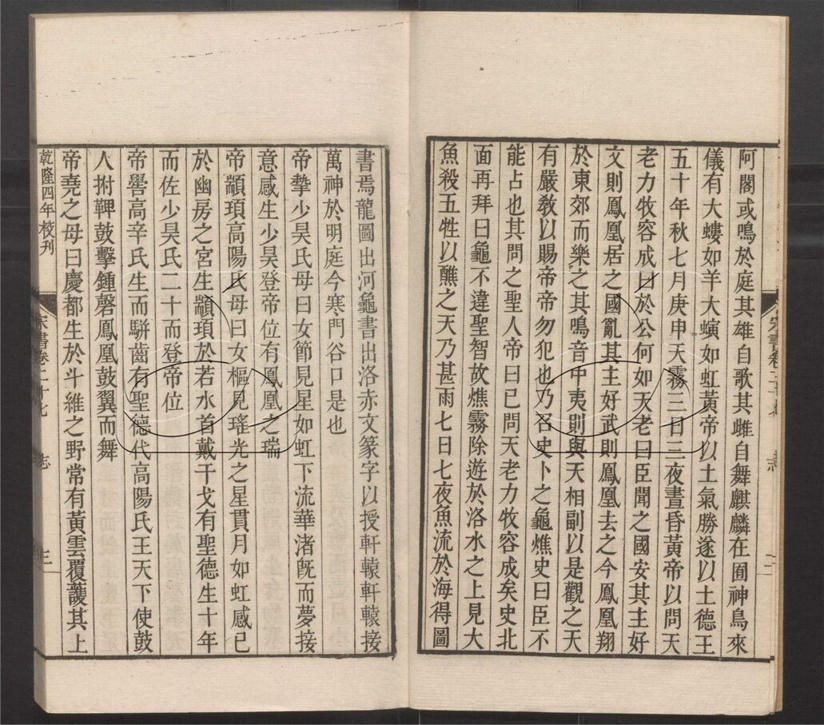 阿閣或鳴於庭其雄自歌其雌自舞麒麟在囿神鳥來
儀有大螻如羊大螾如虹黃帝以土氣勝遂以土德王
五十年秋七月庚申天霧三日三夜晝昏黃帝以問天
老力牧容成曰於公何如天老曰臣聞之國安其主好
文則鳳凰居之國亂其主好武則鳳凰去之今鳳凰翔
於東郊而樂之其鳴音中夷則與天相副以是觀之天
有嚴敎以賜帝帝勿犯也乃召史卜之龜燋史曰臣不
能占也其問之聖人帝曰已問天老力牧容成矣史北
面再拜曰龜不違聖智故燋霧除遊於洛水之上見大
魚殺五牲以醮之天乃甚雨七日七夜魚流於海得圖
書焉龍圖出河龜書出洛赤文篆字以授軒轅軒轅接
萬神於明庭今寒門谷口是也
帝摯少昊氏母曰女節見星如虹下流華渚旣而夢接
意感生少昊登帝位有鳳凰之瑞
帝顓頊高陽氏母曰女樞見瑤光之星貫月如虹感已
於幽房之宮生顓頊於若水首戴干戈有聖德生十年
而佐少昊氏二十而登帝位
帝嚳高辛氏生而駢齒有聖德代高陽氏王天下使鼓
人拊鞞鼓擊鍾磬鳳凰鼓翼而舞
帝堯之母曰慶都生於斗維之野常有黃雲覆護其上
乾隆四年校刊
宋書卷二十七
志
三